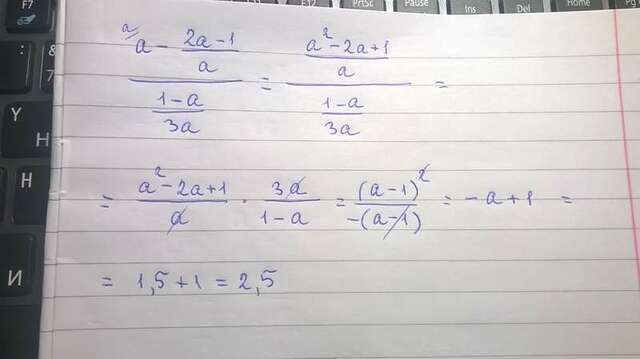 F7 F10 F12 PrtSc Pause Ins Del Home Pg
a a - (2a-1)/a / (1-a)/(3a) = (a²-2a+1)/a / (1-a)/(3a) =
= (a²-2a+1)/a · 3a/(1-a) = (a-1)²/-(a-1) = -a+1 =
= 1,5+1 = 2,5
:
&
7
Y
H
H
И